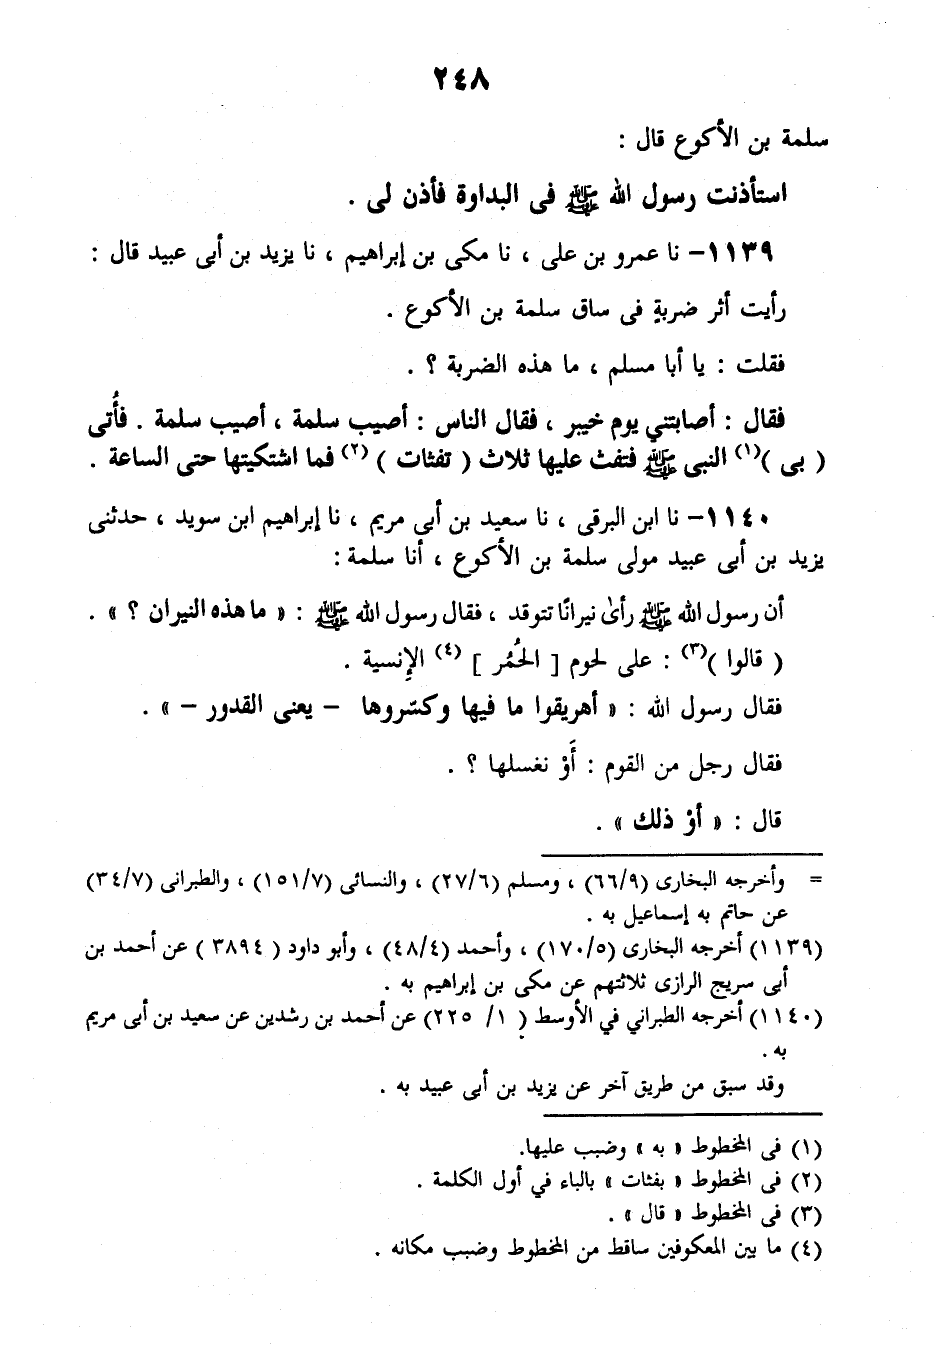 ٢٤٨
سلمة بن الأكوع قال :
استأذنت رسول الله ﷺ فى البداوة فأذن لى .
١١٣٩- نا عمرو بن على ، نا مكى بن إبراهيم ، نا يزيد بن أبى عبيد قال :
رأيت أثر ضربةٍ فى ساق سلمة بن الأكوع .
فقلت : يا أبا مسلم ، ما هذه الضربة ؟ .
فقال : أصابتني يوم خيبر ، فقال الناس : أصيب سلمة ، أصيب سلمة . فأُتى
( بى )(١) النبى ﷺ فتفث عليها ثلاث ( تفثات )(٢) فما اشتكيتها حتى الساعة .
١١٤٠- نا ابن البرقى ، نا سعيد بن أبى مريم ، نا إبراهيم ابن سويد ، حدثنى
يزيد بن أبى عبيد مولى سلمة بن الأكوع ، أنا سلمة :
أن رسول الله ﷺ رأىٰ نيرانًا تتوقد ، فقال رسول الله ﷺ : « ما هذه النيران ؟ » .
( قالوا )(٣) : على لحوم [ الحُمُر ](٤) الإنسية .
فقال رسول الله : « أهريقوا ما فيها وكسّروها - يعنى القدور - » .
فقال رجل من القوم : أَوْ نغسلها ؟ .
قال : « أوْ ذلك » .
= وأخرجه البخارى (٦٦/٩) ، ومسلم (٢٧/٦) ، والنسائى (١٥١/٧) ، والطبرانى (٣٤/٧)
عن حاتم به إسماعيل به .
(١١٣٩) أخرجه البخارى (١٧٠/٥) ، وأحمد (٤٨/٤) ، وأبو داود ( ٣٨٩٤ ) عن أحمد بن
أبى سريج الرازى ثلاثتهم عن مكى بن إبراهيم به .
(١١٤٠) أخرجه الطبراني في الأوسط ( ١/ ٢٢٥) عن أحمد بن رشدين عن سعيد بن أبى مريم
به .
وقد سبق من طريق آخر عن يزيد بن أبى عبيد به .
(١) فى المخطوط « به » وضبب عليها.
(٢) فى المخطوط « بفثات » بالباء في أول الكلمة .
(٣) فى المخطوط « قال » .
(٤) ما بين المعكوفين ساقط من المخطوط وضبب مكانه .